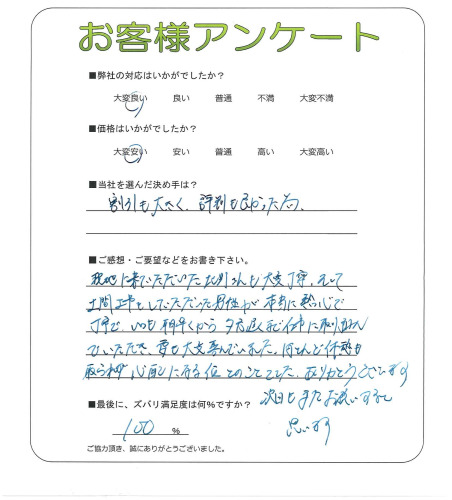 お客様アンケート
■弊社の対応はいかがでしたか？
大変良い 良い 普通 不満 大変不満
■価格はいかがでしたか？
大変安い 安い 普通 高い 大変高い
■当社を選んだ決め手は？
割引も大きく、評判も良かった為、
■ご感想・ご要望などをお書き下さい。
現地に来ていただいた も大変丁寧、そして
土間工事をしていただいた男性が本当に熱心で
丁寧で、いつも朝早くから夕方遅くまで仕事に取り組んで
いただき、妻も大変喜んでいました。ほとんど休憩も
取られず心配になる位とのことでした。ありがとうございます
次回もまたお願いすると
思います
■最後に、ズバリ満足度は何％ですか？
100 ％
ご協力頂き、誠にありがとうございました。